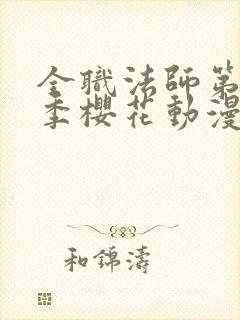 全職法師第
季櫻花動漫
和錦濤